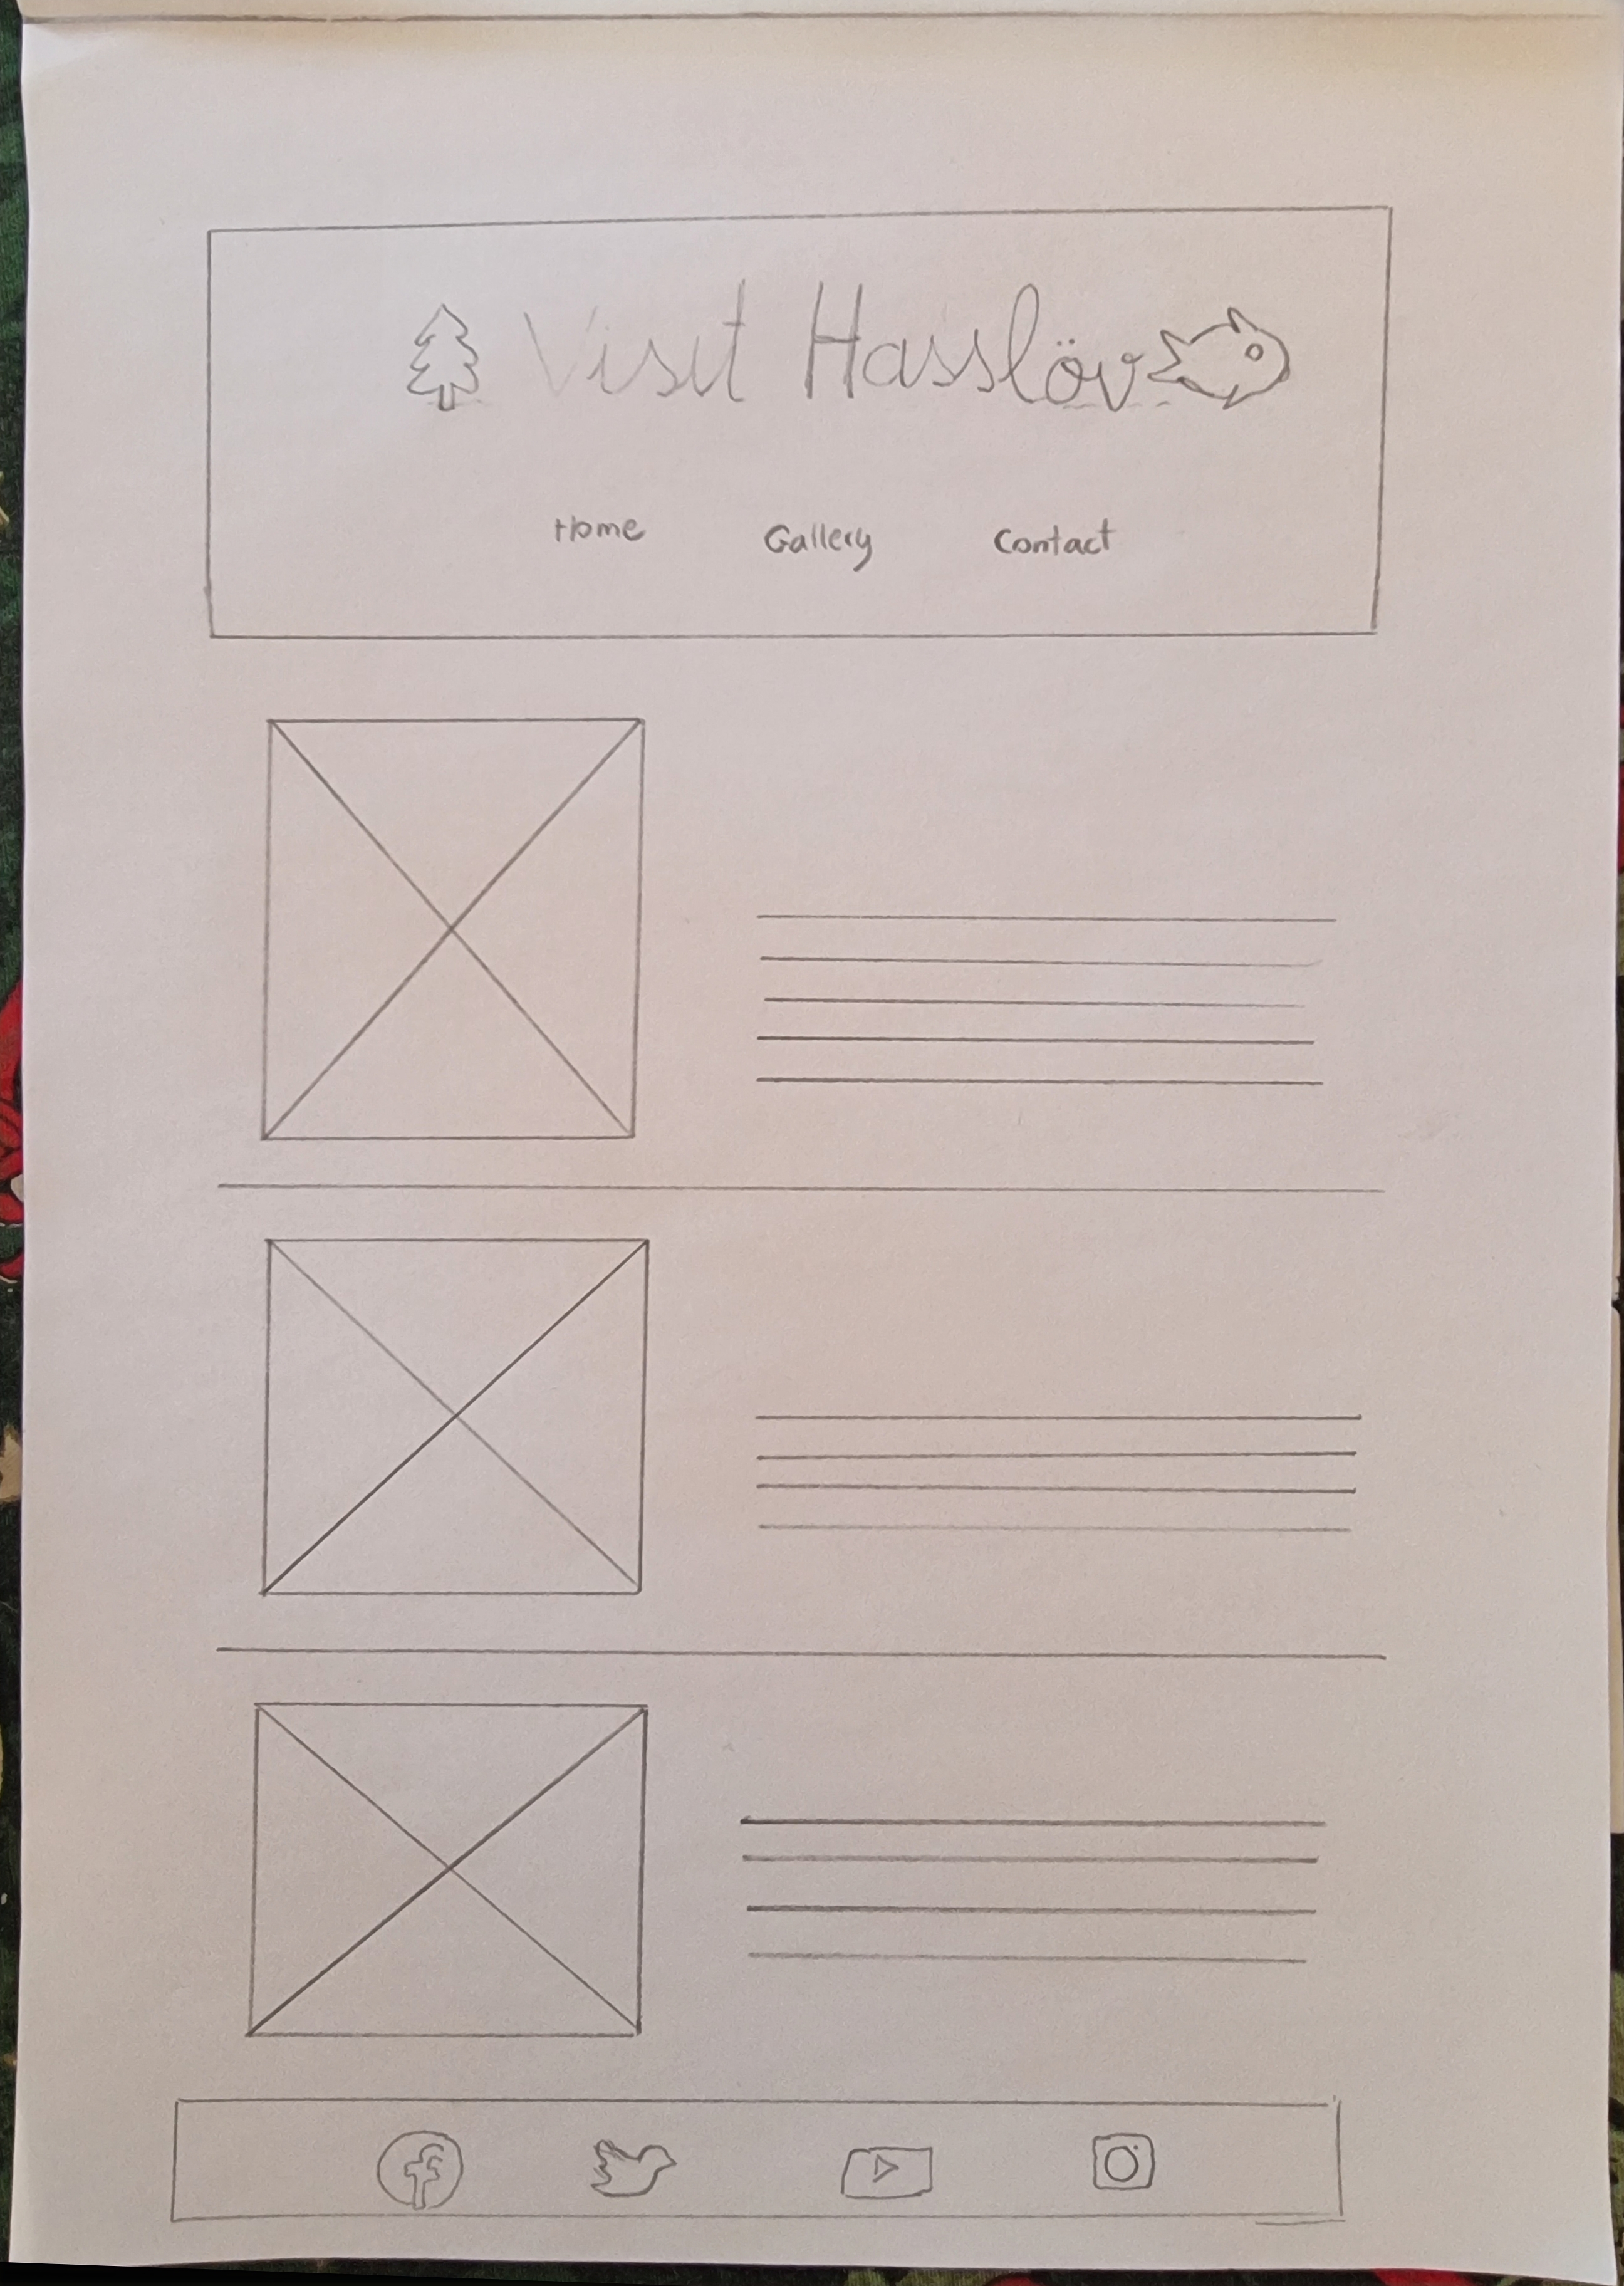 Visit Hasslöv
Home Gallery Contact
f